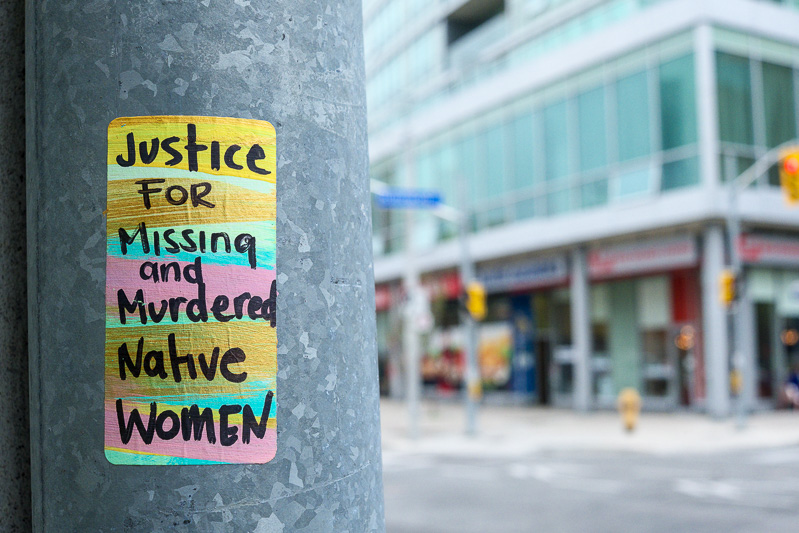 Justice
FOR
Missing
and
Murdered
Native
WOMEN